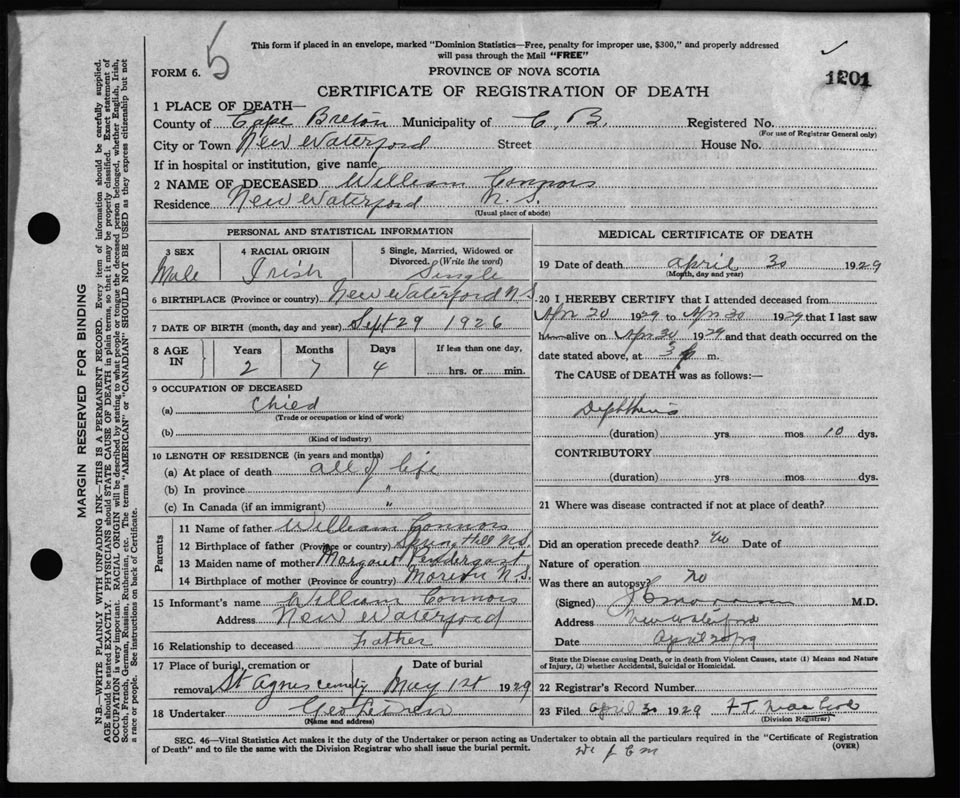 5
This form if placed in an envelope, marked "Dominion Statistics—Free, penalty for improper use, $300," and properly addressed
will pass through the Mail "FREE"
FORM 6.
PROVINCE OF NOVA SCOTIA
1201
CERTIFICATE OF REGISTRATION OF DEATH
1 PLACE OF DEATH—
County of Cape Breton Municipality of C. B. Registered No.
(For use of Registrar General only)
City or Town New Waterford Street House No.
If in hospital or institution, give name
2 NAME OF DECEASED William Connors
Residence New Waterford N. S.
(Usual place of abode)
PERSONAL AND STATISTICAL INFORMATION
3 SEX 4 RACIAL ORIGIN 5 Single, Married, Widowed or
Divorced. (Write the word)
Male Irish Single
6 BIRTHPLACE (Province or country) New Waterford N.S.
7 DATE OF BIRTH (month, day and year) Sept 29 1926
8 AGE IN Years Months Days If less than one day,
2 7 4 hrs. or min.
9 OCCUPATION OF DECEASED
(a) Chied
(Trade or occupation or kind of work)
(b)
(Kind of industry)
10 LENGTH OF RESIDENCE (in years and months)
(a) At place of death all of life
(b) In province "
(c) In Canada (if an immigrant) "
Parents
11 Name of father William Connors
12 Birthplace of father (Province or country) Spring Hill N.S.
13 Maiden name of mother Margaret
14 Birthplace of mother (Province or country) N.S.
15 Informant's name William Connors
Address New Waterford
16 Relationship to deceased Father
17 Place of burial, cremation or Date of burial
removal St Agnes cemety May 1st 1929
18 Undertaker Geo
(Name and address)
MEDICAL CERTIFICATE OF DEATH
19 Date of death April 30 1929
(Month, day and year)
20 I HEREBY CERTIFY that I attended deceased from
Apr 20 1929 to Apr 30 1929 that I last saw
him alive on Apr 30 1929 and that death occurred on the
date stated above, at 3 p m.
The CAUSE of DEATH was as follows:—
Diphtheria
(duration) yrs mos 10 dys.
CONTRIBUTORY
(duration) yrs. mos. dys.
21 Where was disease contracted if not at place of death?
Did an operation precede death? no Date of
Nature of operation
Was there an autopsy? no
(Signed) M.D.
Address New Waterford
Date April 30/29
State the Disease causing Death, or in death from Violent Causes, state (1) Means and Nature
of Injury, (2) whether Accidental, Suicidal or Homicidal.
22 Registrar's Record Number
23 Filed April 30 1929 F.T. MacLeod
(Division Registrar)
SEC. 46—Vital Statistics Act makes it the duty of the Undertaker or person acting as Undertaker to obtain all the particulars required in the "Certificate of Registration
of Death" and to file the same with the Division Registrar who shall issue the burial permit.
(OVER)
MARGIN RESERVED FOR BINDING
N.B.—WRITE PLAINLY WITH UNFADING INK—THIS IS A PERMANENT RECORD. Every item of information should be carefully supplied.
AGE should be stated EXACTLY. PHYSICIANS should STATE CAUSE OF DEATH in plain terms, so that it may be properly classified. Exact statement of
OCCUPATION is very important. RACIAL ORIGIN will be described by stating to what people or tongue the deceased person belonged, whether English, Irish,
Scotch, French, German, Russian, Ruthenian, etc. The terms "AMERICAN" or "CANADIAN" SHOULD NOT BE USED as they express citizenship but not
a race or people. See instructions on back of Certificate.